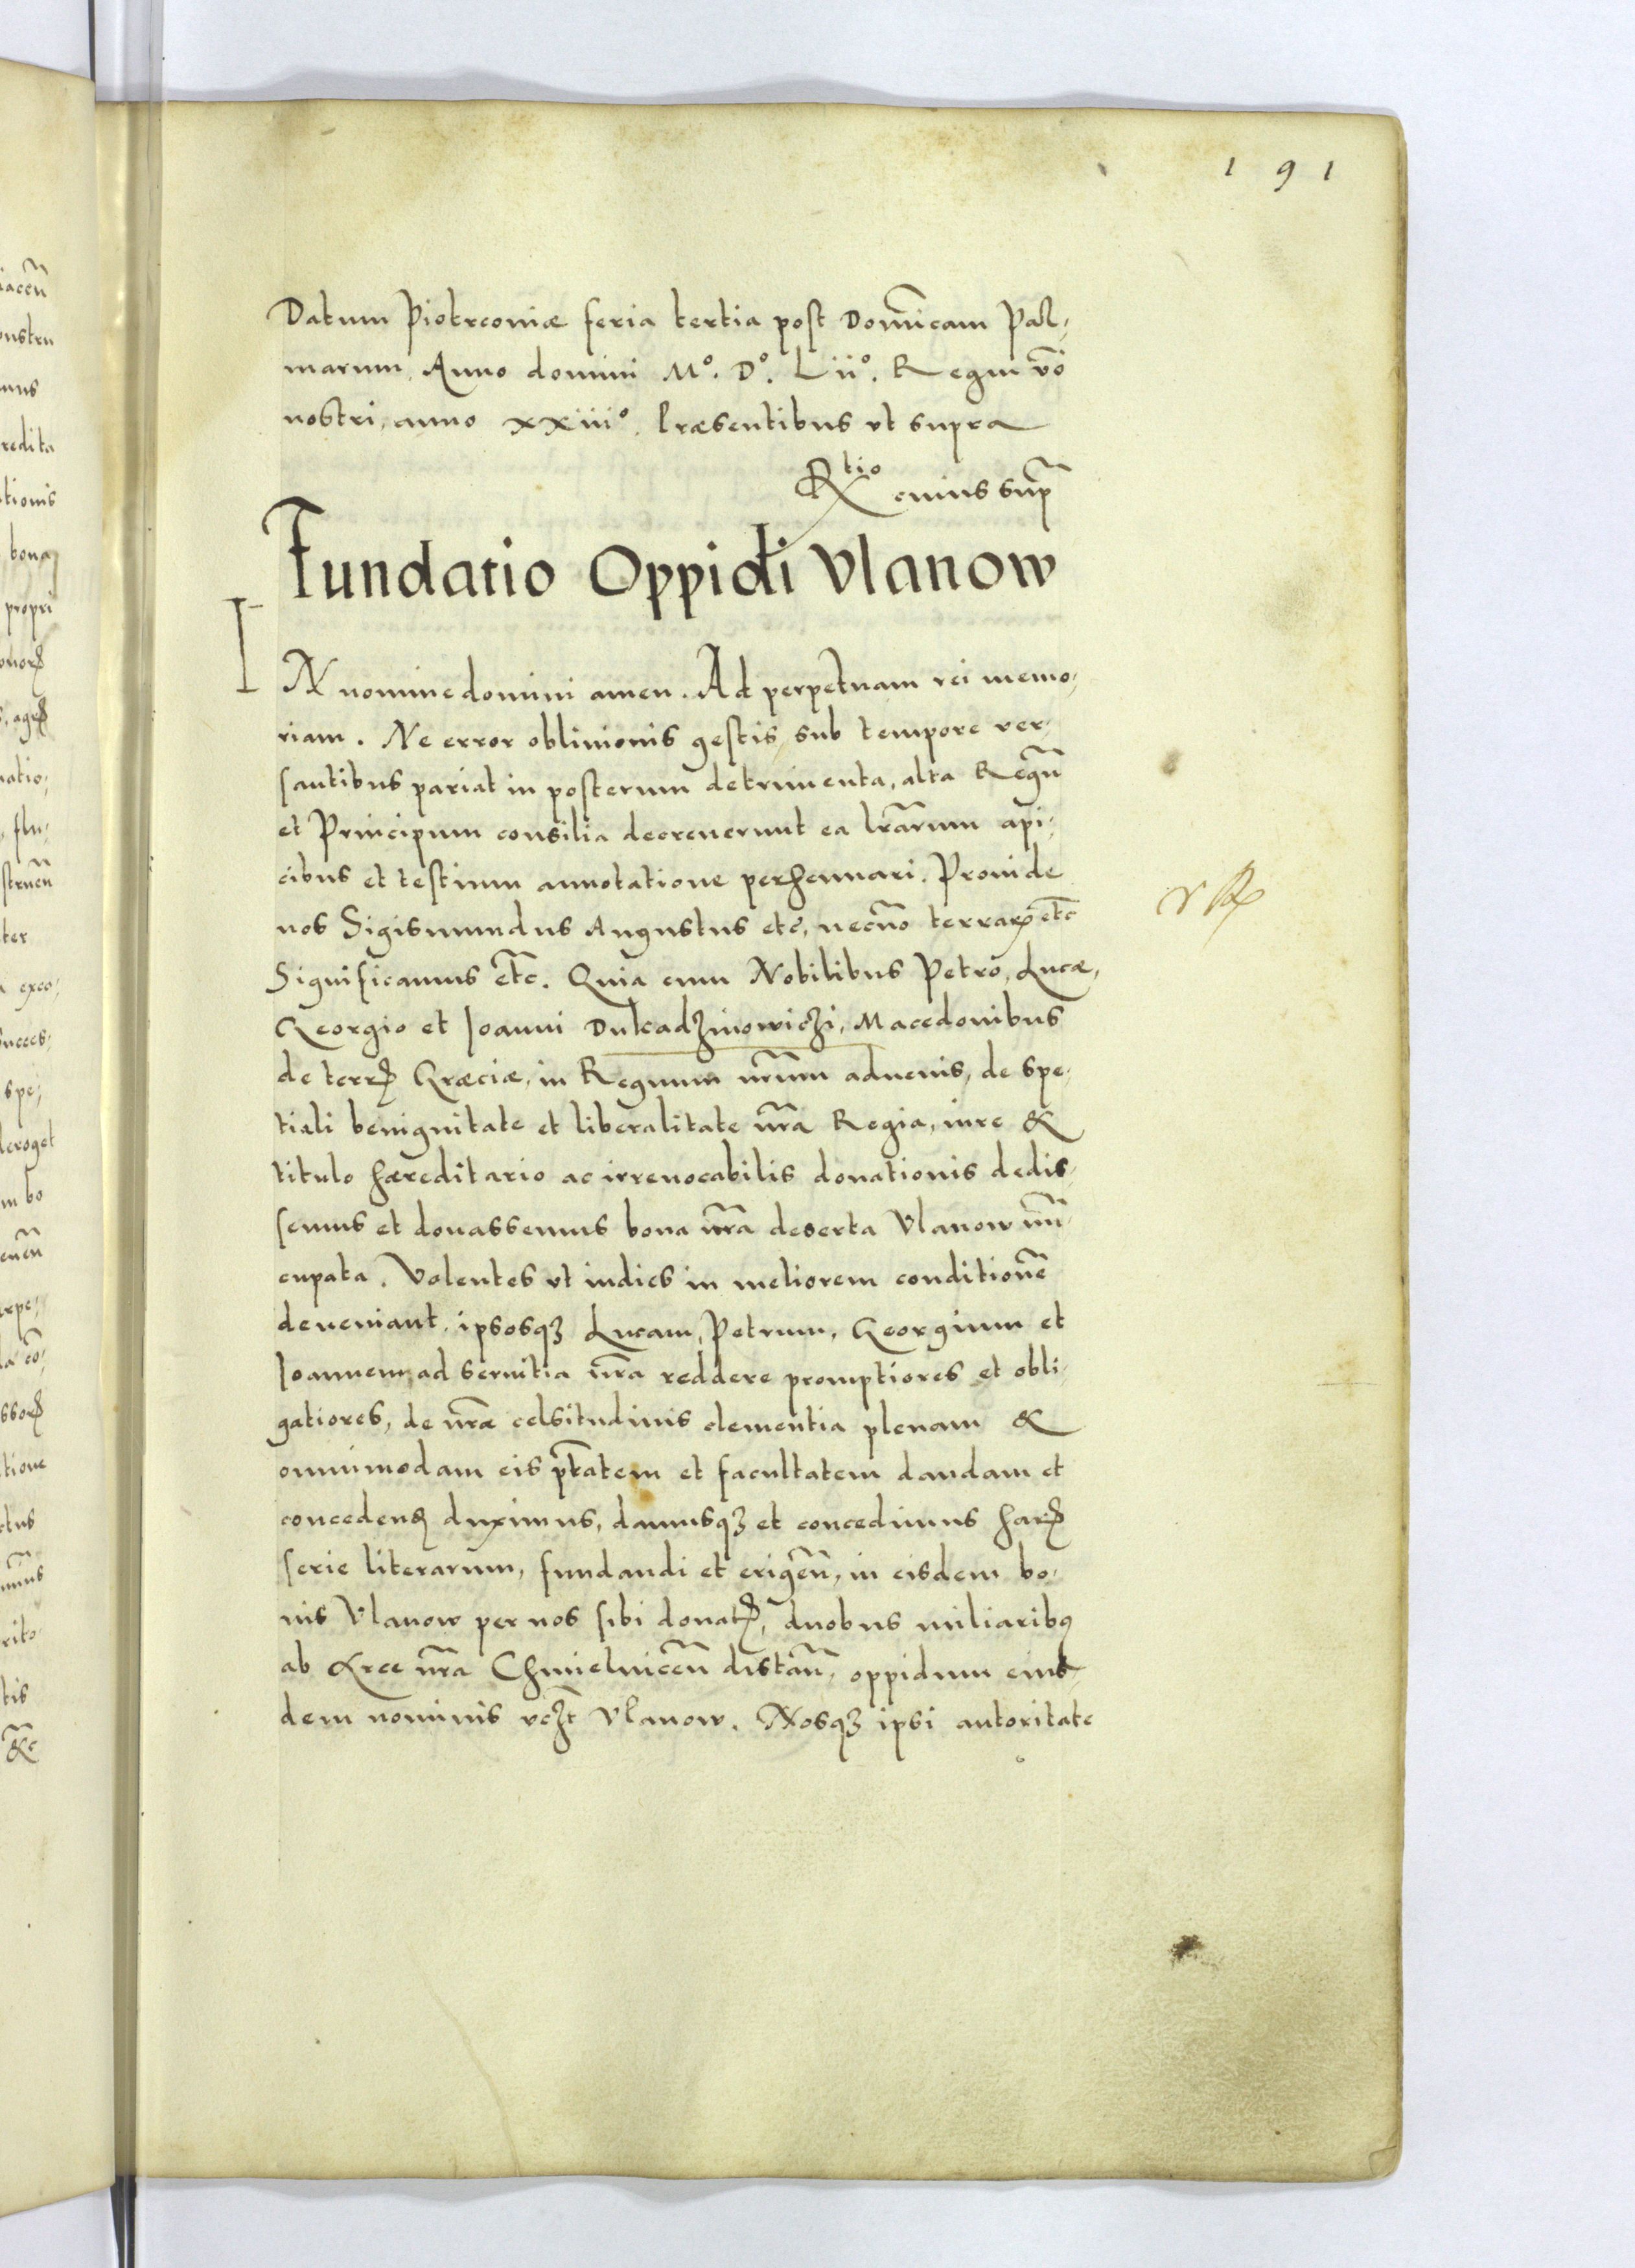 191
Datum Piotrcoviæ feria tertia post Domicam Pal-
marum, Anno domini Mº. Dº. Liiº. Regni vo
nostri, anno xxiiiº. Præsentibus vt supra
Rtio cuius sup
Fundatio Oppidi Vlanow
IN nomine domini amen. Ad perpetuam rei memo-
riam. Ne error oblivionis gestis, sub tempore ver-
santibus pariat in posterum detrimenta, alta Regu
et Principum consilia decreverunt ea lrarum api-
cibus et testium annotatione perhennari. Proinde
nos Sigismundus Augustus etc, necno terrarꝝ etc
Significamus etc. Quia cum Nobilibus Petro, Lucæ,
Georgio et Joanni Dulcadzinowiczi, Macedonibus
de terrꝭ Græciæ, in Regnum nrum advenis, de spe-
tiali benignitate et liberalitate nra Regia, iure &
titulo hæreditario ac irrevocabilis donationis dedis-
semus et donassemus bona nra deserta Vlanow nu-
cupata. Volentes vt indies in meliorem conditione
deveniant, ipsosqꝫ Lucam, Petrum, Georgium et
Joannem, ad servitia nra reddere promptiores et obli-
gatiores, de nræ celsitudinis clementia plenam &
omnimodam eis ptatem et facultatem dandam et
concedenꝗ duximus, damusqꝫ et concedimus harꝭ
serie literarum, fundandi et erigen, in eisdem bo-
nis Vlanow per nos sibi donatꝭ, duobus miliaribꝯ
ab Arce nra Chmielnicen distan, oppidum eius-
dem nominis vczt Vlanow. Nosqꝫ ipsi autoritate